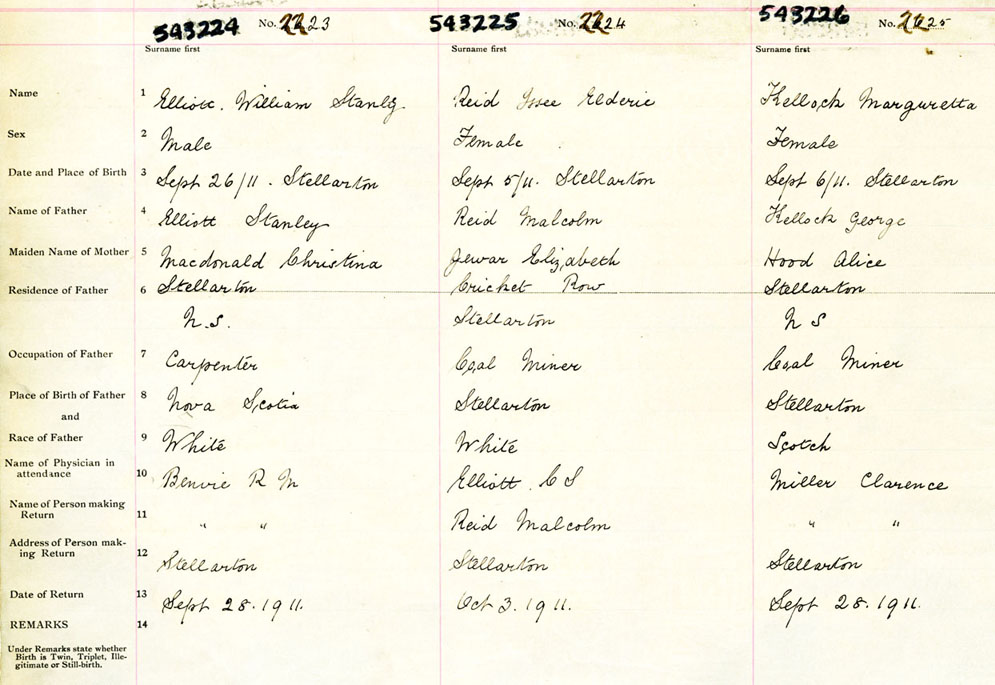 543224 No. 2223 543225 No. 2224 543226 No. 2225
Surname first Surname first Surname first
Name 1 Elliott. William Stanley. Reid Elderic Kellock Marguretta
Sex 2 Male Female Female
Date and Place of Birth 3 Sept 26/11. Stellarton Sept 5/11. Stellarton Sept 6/11. Stellarton
Name of Father 4 Elliott Stanley Reid Malcolm Kellock George
Maiden Name of Mother 5 Macdonald Christina Jewar Elizabeth Hood Alice
Residence of Father 6 Stellarton Cricket Row Stellarton
N.S. Stellarton N S
Occupation of Father 7 Carpenter Coal Miner Coal Miner
Place of Birth of Father 8 Nova Scotia Stellarton Stellarton
and
Race of Father 9 White White Scotch
Name of Physician in
attendance 10 Benvie R M Elliott. C S Miller Clarence
Name of Person making
Return 11 " " Reid Malcolm " "
Address of Person mak-
ing Return 12 Stellarton Stellarton Stellarton
Date of Return 13 Sept 28. 1911. Oct 3. 1911. Sept 28. 1911.
REMARKS 14
Under Remarks state whether
Birth is Twin, Triplet, Ille-
gitimate or Still-birth.